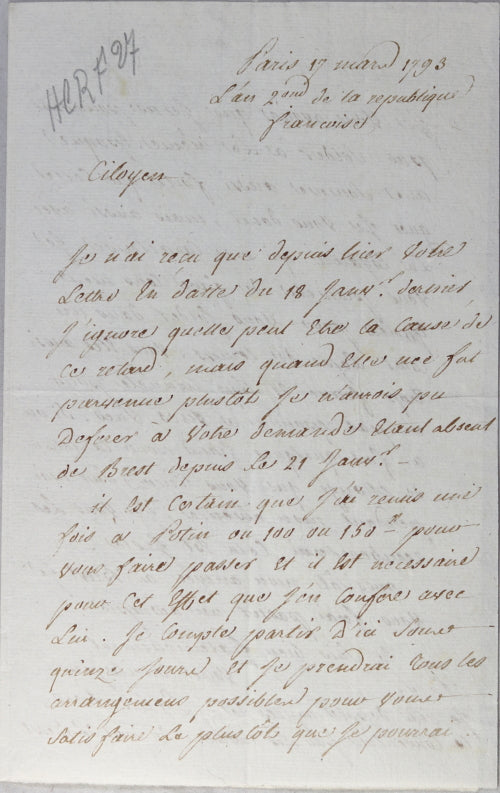 HCRF 27
Paris 17 mars 1793
L'an 2.ond de la republique
francoise
Citoyen
Je n'ai reçu que depuis hier votre
Lettre En datte du 18 Janv.r dernier
J'ignore quelle peut Etre la Cause de
ce retard, mais quand Elle me fut
parvenue plustôt Je n'aurois pu
Deferer a Votre demande Etant absent
de Brest depuis le 21 Janv.r
il Est Certain que J'ai remis une
fois a Potin ou 100 ou 150 tt pour
vous faire passer Et il Est necessaire
pour Cet Effet que J'en Confere avec
Lui. Je Compte partir D'ici sous
quinze Jours Et Je prendrai tous les
arrangemens possibles pour vous
satisfaire Le plustôt que Je pourrai